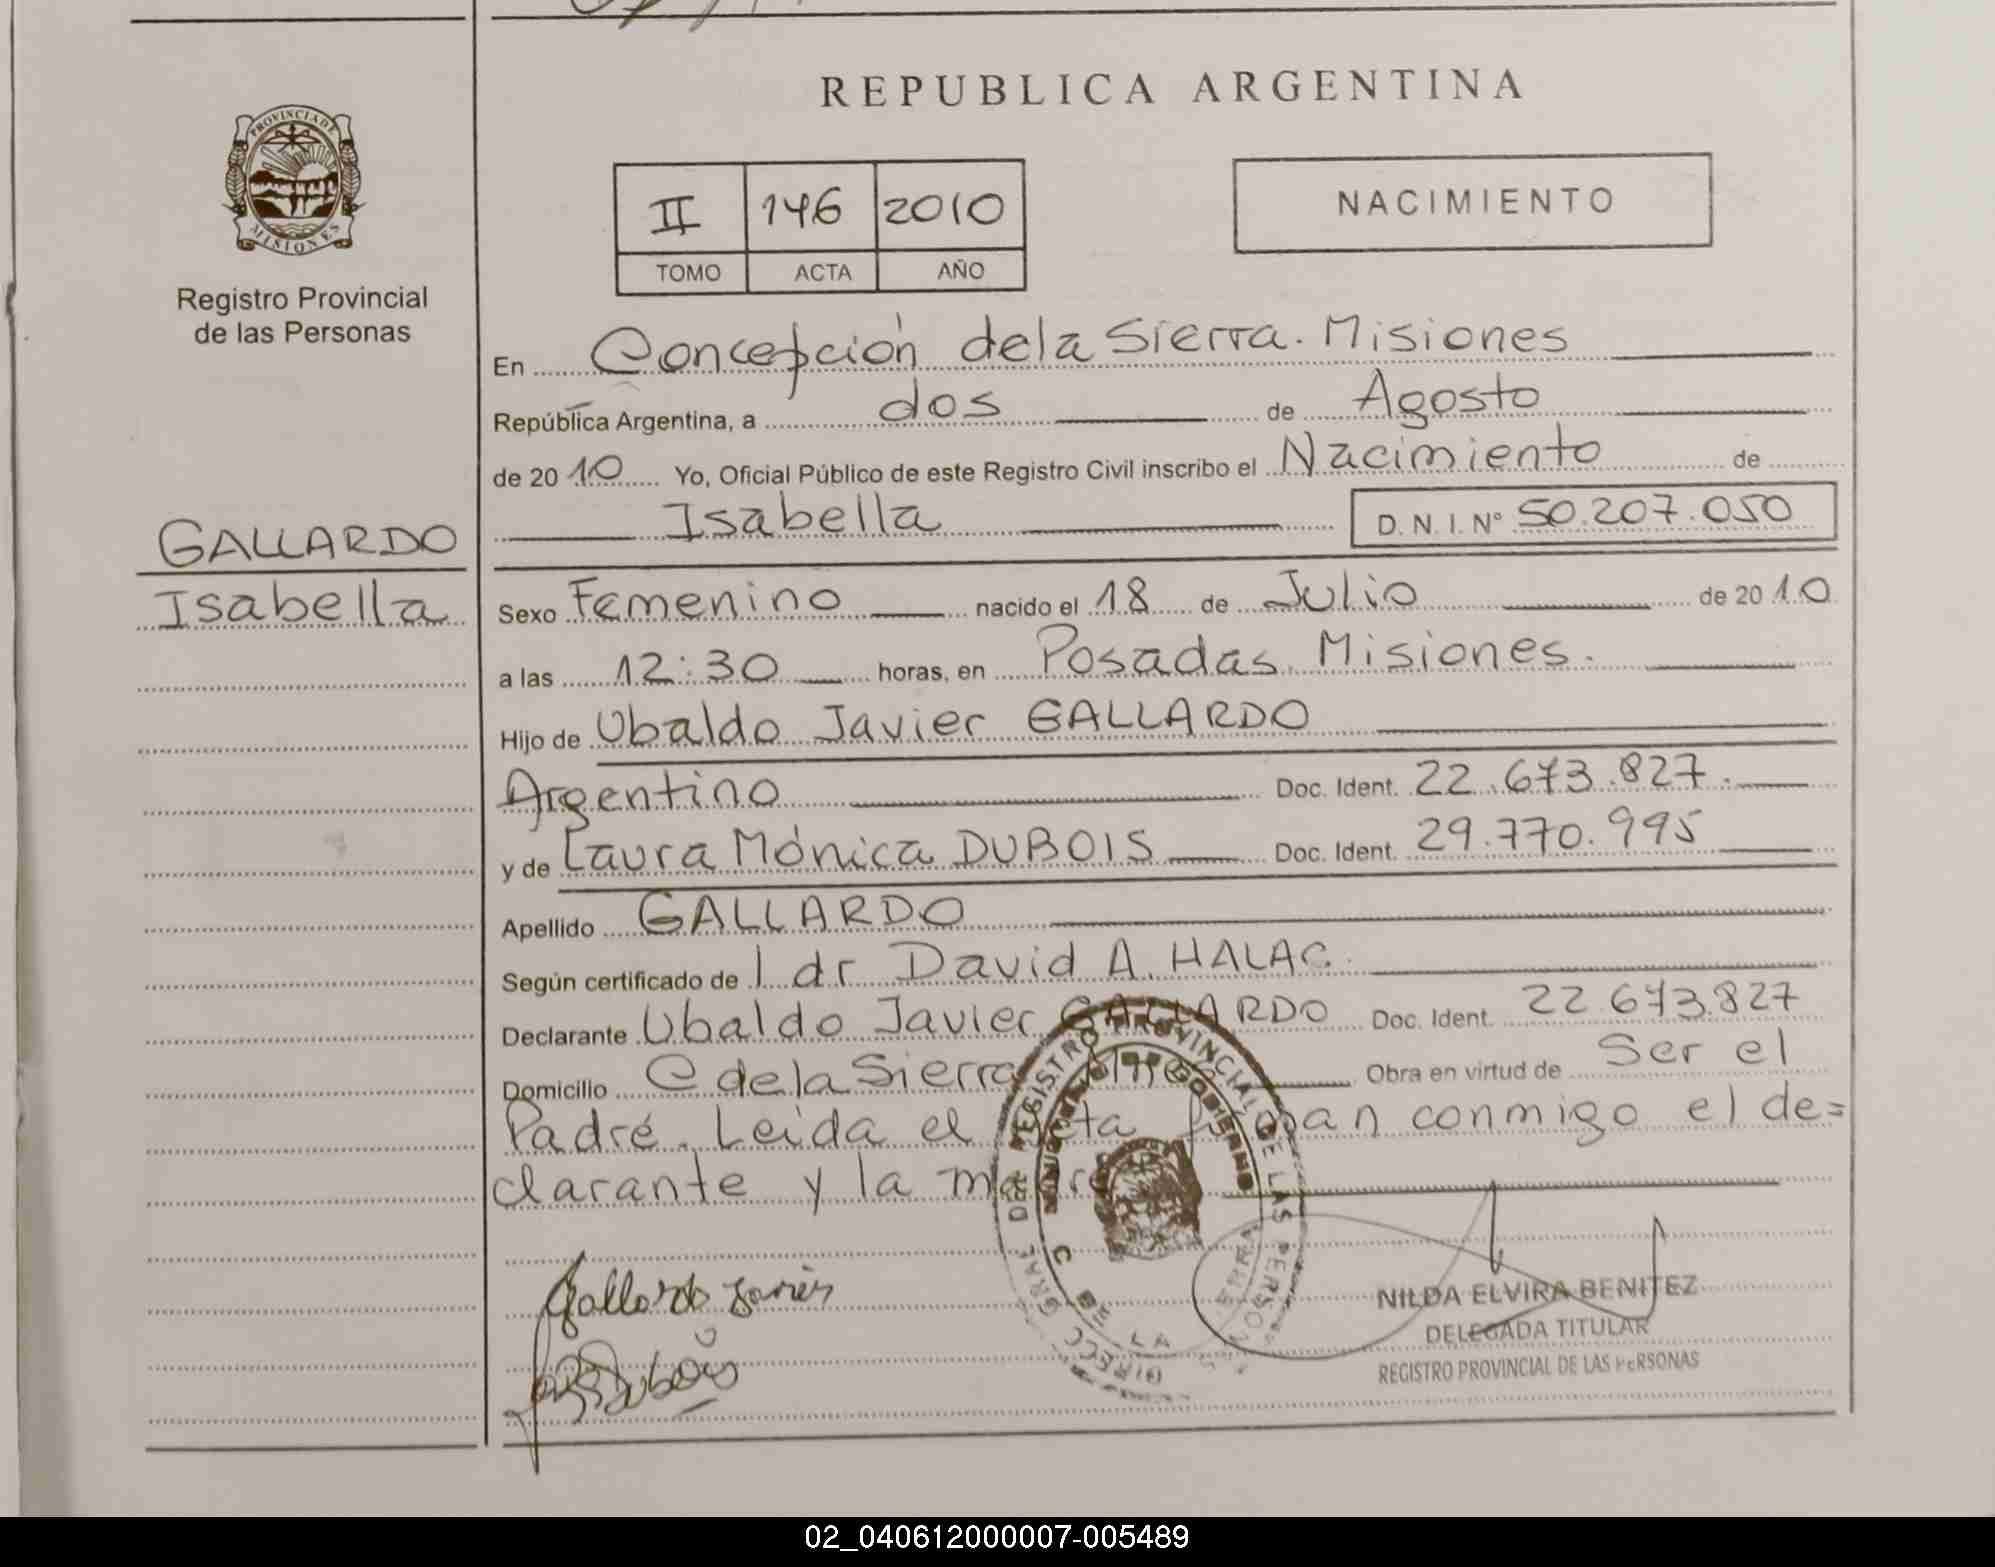 REPUBLICA ARGENTINA
PROVINCIA DE
MISIONES
Registro Provincial
de las Personas
II 146 2010
TOMO ACTA AÑO
NACIMIENTO
En Concepción de la Sierra. Misiones
República Argentina, a dos de Agosto
de 2010 Yo, Oficial Público de este Registro Civil inscribo el Nacimiento de
Isabella D. N. I. N° 50.207.050
GALLARDO
Isabella
Sexo Femenino nacido el 18 de Julio de 2010
a las 12:30 horas, en Posadas. Misiones.
Hijo de Ubaldo Javier GALLARDO
Argentino Doc. Ident. 22.673.827.
y de Laura Mónica DUBOIS Doc. Ident. 29.770.995
Apellido GALLARDO
Según certificado de l dr David A. HALAC.
Declarante Ubaldo Javier GALLARDO Doc. Ident. 22.673.827
Domicilio C de la Sierra Obra en virtud de Ser el
Padre. Leida el acta firman conmigo el de=
clarante y la madre
DIRECC. GRAL. DEL REGISTRO PROVINCIAL DE LAS PERSONAS
Gallardo Javier
Dubois
NILDA ELVIRA BENITEZ
DELEGADA TITULAR
REGISTRO PROVINCIAL DE LAS PERSONAS
02_040612000007-005489